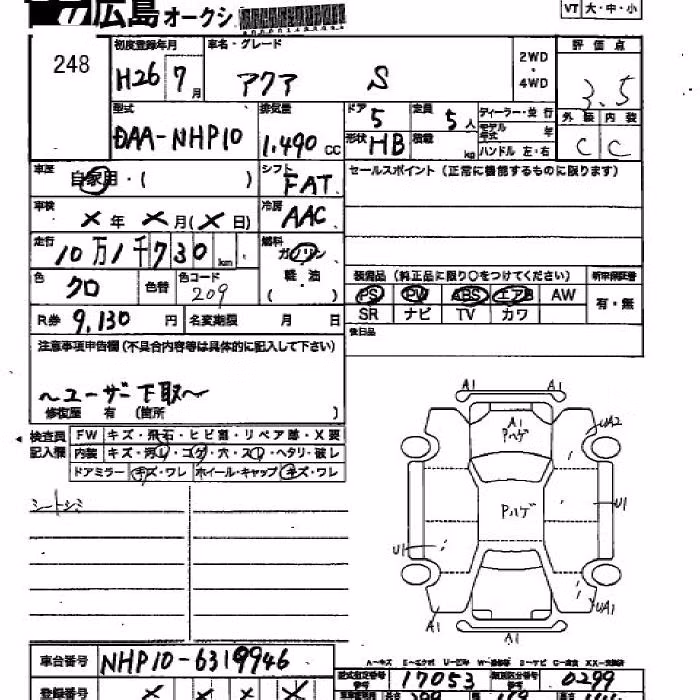 広島オークシ
VT 大・中・小
248
初度登録年月 車名・グレード 2WD・4WD 評価点
H26 7月 アクア S 3.5
型式 排気量 ドア 5 定員 5人 ディーラー・並行 外装 内装
DAA-NHP10 1.490 CC 形状 HB 積載 kg モデル年式 年 C C
ハンドル 左・右
車歴 自家用・( ) シフト FAT セールスポイント(正常に機能するものに限ります)
車検 X年 X月(X日) 冷房 AAC
走行 10万1千730km 燃料 ガソリン・軽油( )
色 クロ 色替 色コード 209
装備品(純正品に限り○をつけてください) 新車保証書
PS PW ABS エアB AW 有・無
SR ナビ TV カワ
R券 9,130円 名変期限 月 日 後日品
注意事項申告欄(不具合内容等は具体的に記入して下さい)
〜ユーザー下取〜
修復歴 有 (箇所 )
検査員記入欄 FW キズ・飛石・ヒビ割・リペア跡・X要
内装 キズ・汚レ・コゲ・穴・スレ・ヘタリ・破レ
ドアミラー キズ・ワレ ホイール・キャップ キズ・ワレ
シートシミ
A1 A1
A1 Pハゲ UA2
Pハゲ U1
U1
A1 UA1
A1 A1
車台番号 NHP10-6319946
A-キズ E-エクボ U-凹
型式指定番号 17053 類別区分番号 0299
登録番号 X X X X
車両重量